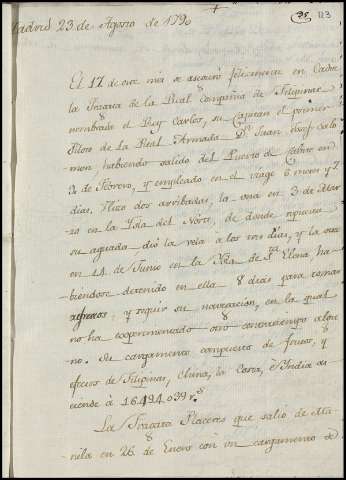 35 113
Madrid 23 de Agosto de 1790
El 17 de este mes se ancoró felizmente en Cadiz
la Fragata de la Real Compañia de Filipinas
nombrada el Rey Carlos, su Capitan el primer
Piloto de la Real Armada Dn. Juan Josef
men, habiendo salido del Puerto de en
3 de Febrero, y empleado en el viage 6 meses y
dias. Hizo dos arribadas, la una en 3 de Mar-
zo en la Isla del Norte, de donde
su aguada dió la vela á los dias, y la otra
en 14 de Junio en la Isla de Sta. Elena, ha-
biendose detenido en ella 8 dias para tomar
refrescos, y seguir su navegacion, en la qual
no ha experimentado otro contratiempo algu-
no. Su cargamento compuesto de frutos, y
efectos de Filipinas, China, la Costa, é India as
ciende á 16.494.039 rs.
La Fragata Placeres que salió de Ma-
nila en 26 de Enero con un cargamento de